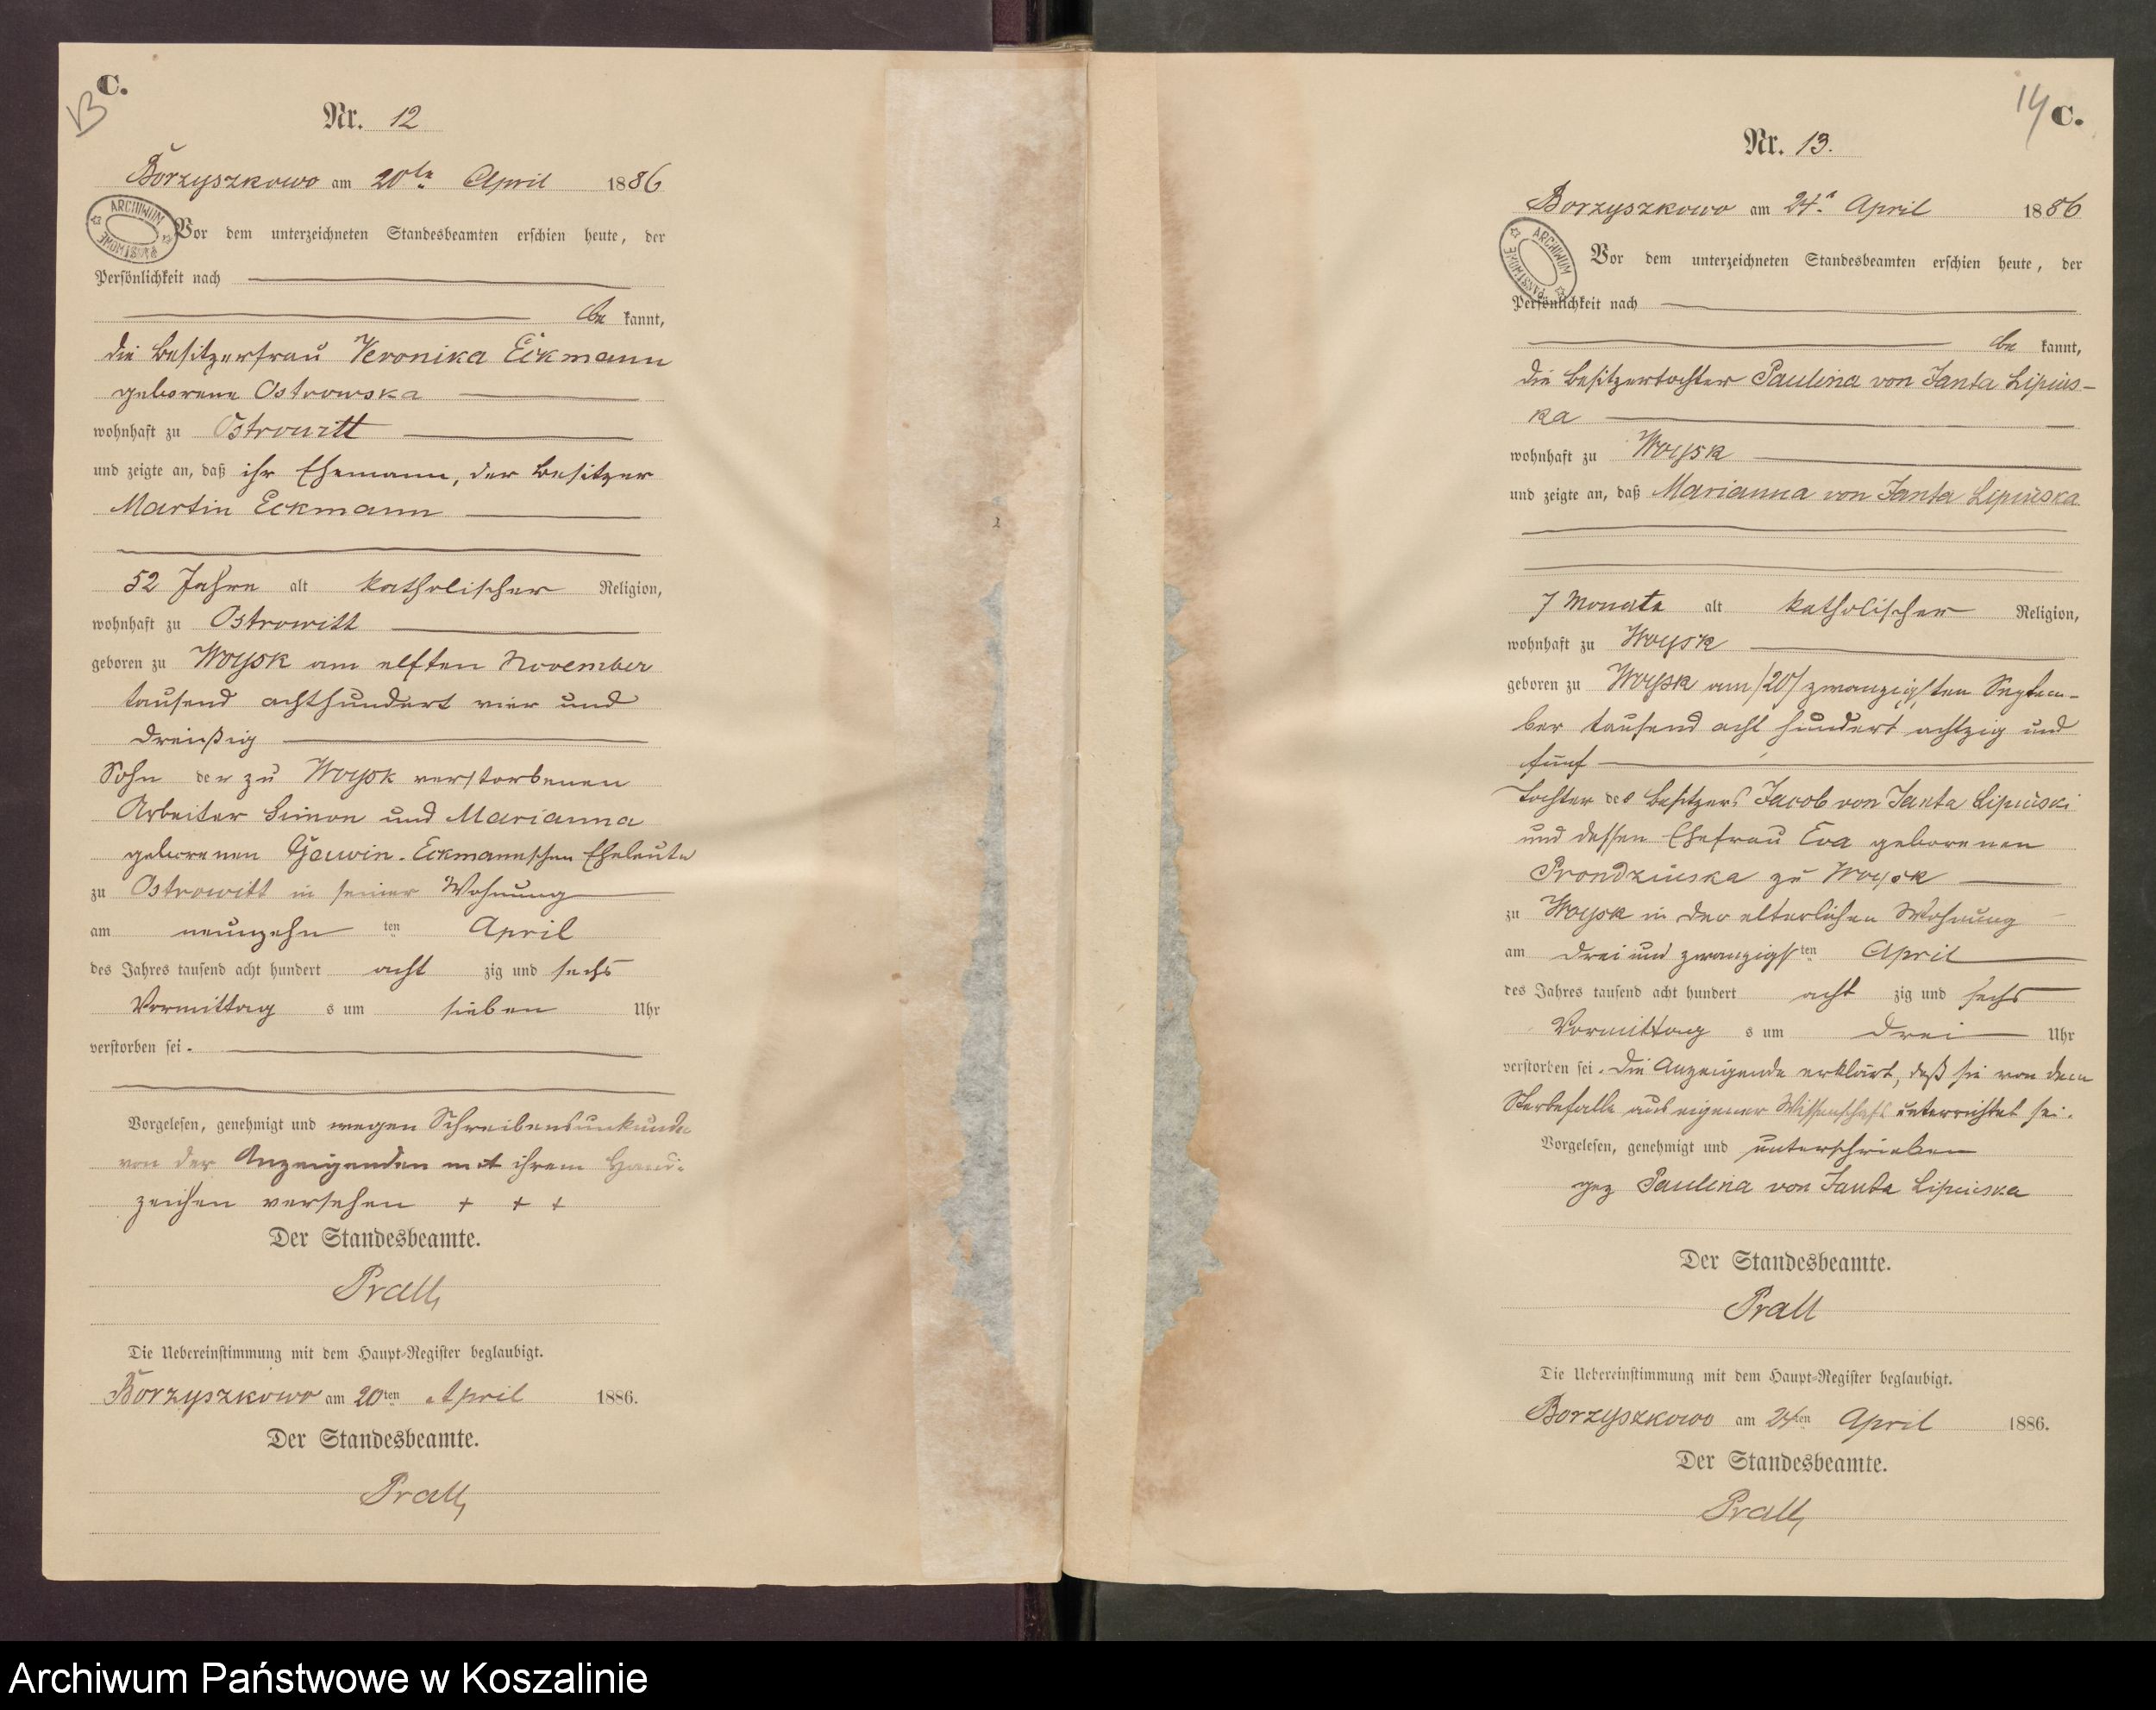 C.
13
Nr. 12
Borzyszkowo am 20ten April 1886
ARCHIWUM PAŃSTWOWE
Vor dem unterzeichneten Standesbeamten erschien heute, der
Persönlichkeit nach
be kannt,
die Besitzerfrau Veronika Eckmann
geborene Ostrowska
wohnhaft zu Ostrowitt
und zeigte an, daß ihr Ehemann, der Besitzer
Martin Eckmann
52 Jahre alt katholischer Religion,
wohnhaft zu Ostrowitt
geboren zu Woysk am elften November
tausend achthundert vier und
dreißig
Sohn der zu Woysk verstorbenen
Arbeiter Simon und Marianna
geborenen Eckmannschen Eheleute
zu Ostrowitt in seiner Wohnung
am neunzehn ten April
des Jahres tausend acht hundert acht zig und sechs
Vormittag s um sieben Uhr
verstorben sei.
Vorgelesen, genehmigt und wegen Schreibensunkunde
von der Anzeigenden mit ihrem Hand-
zeichen versehen + + +
Der Standesbeamte.
Prall
Die Uebereinstimmung mit dem Haupt-Register beglaubigt.
Borzyszkowo am 20ten April 1886.
Der Standesbeamte.
Prall
14
C.
Nr. 13.
Borzyszkowo am 24. April 1886
ARCHIWUM PAŃSTWOWE
Vor dem unterzeichneten Standesbeamten erschien heute, der
Persönlichkeit nach
be kannt,
die Besitzertochter Paulina von Janta Lipins-
ka
wohnhaft zu Woysk
und zeigte an, daß Marianna von Janta Lipinska
7 Monate alt katholischer Religion,
wohnhaft zu Woysk
geboren zu Woysk am /20/ zwanzigsten Septem-
ber tausend acht hundert achtzig und
fünf
Tochter des Besitzers Jacob von Janta Lipinski
und dessen Ehefrau Eva geborenen
Prondzinska zu Woysk
zu Woysk in der elterlichen Wohnung
am drei und zwanzigs ten April
des Jahres tausend acht hundert acht zig und sechs
Vormittag s um drei Uhr
verstorben sei. Die Anzeigende erklärt, daß sie von dem
Sterbefalle aus eigener Wissenschaft unterrichtet sei.
Vorgelesen, genehmigt und unterschrieben
gez Paulina von Janta Lipinska
Der Standesbeamte.
Prall
Die Uebereinstimmung mit dem Haupt-Register beglaubigt.
Borzyszkowo am 24ten April 1886.
Der Standesbeamte.
Prall
Archiwum Państwowe w Koszalinie